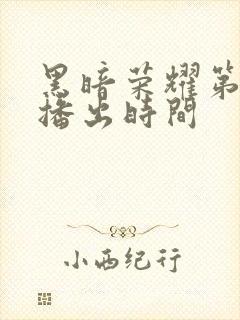 黑暗荣耀第
播出時間
小西纪行